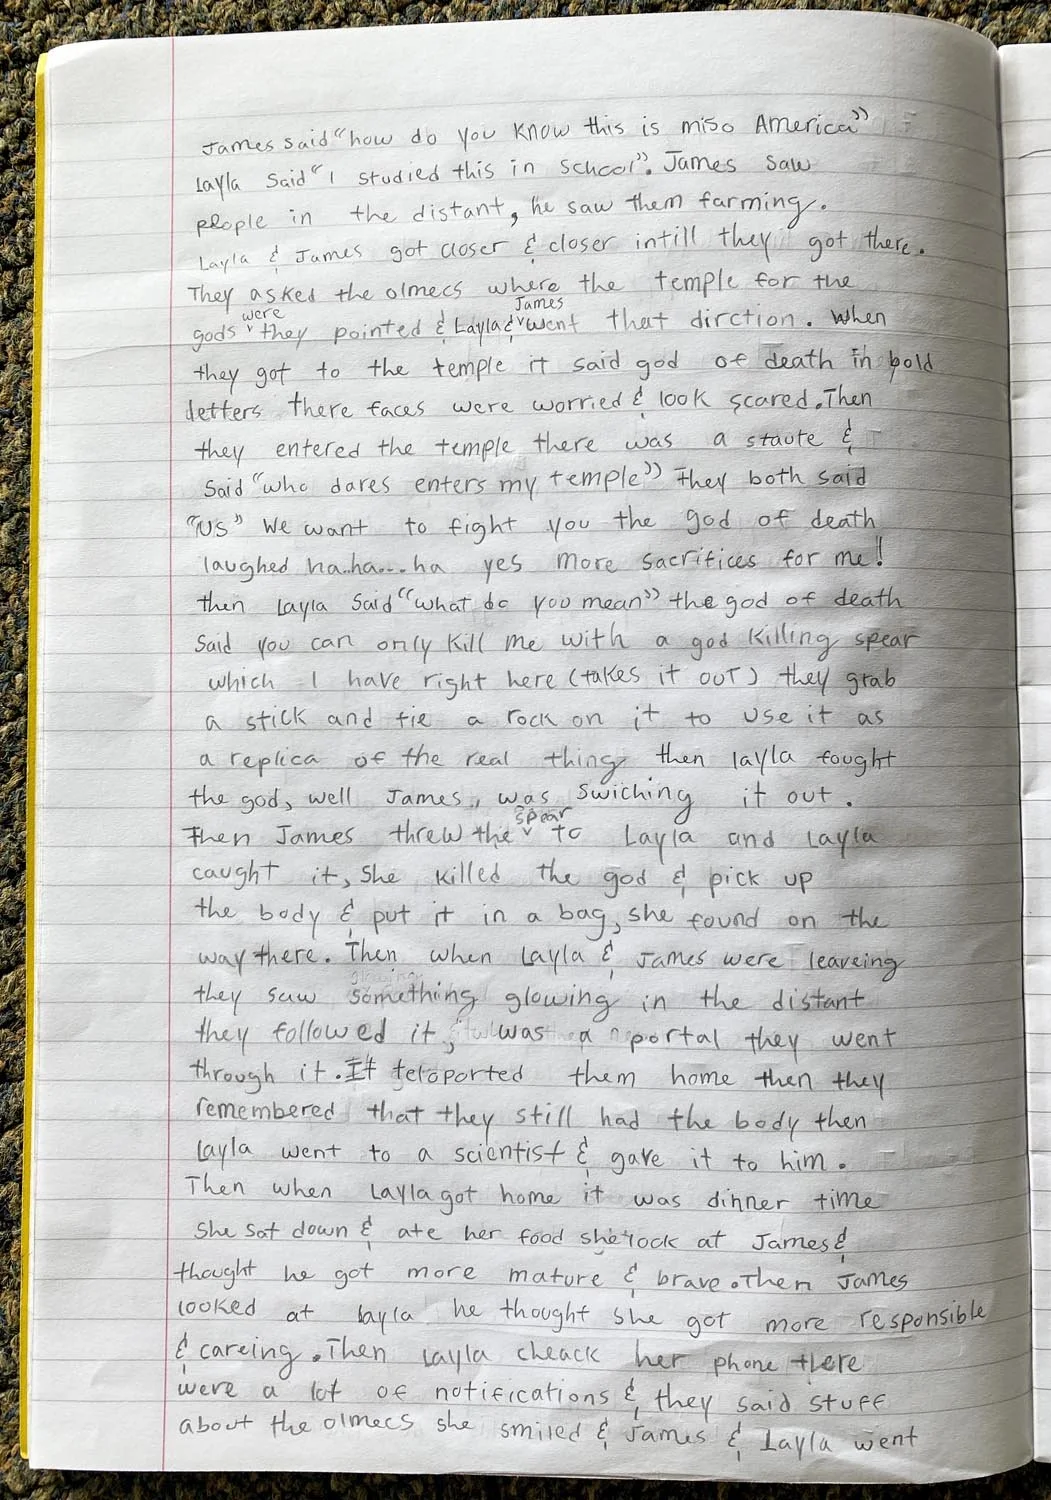 James said "how do you know this is miso America"
Layla Said "I studied this in school". James saw
people in the distant, he saw them farming.
Layla & James got closer & closer intill they got there.
They asked the olmecs where the temple for the
gods were they pointed & Layla & James went that dirction. When
they got to the temple it said god of death in bold
letters there faces were worried & look scared. Then
they entered the temple there was a staute &
Said "who dares enters my temple" They both said
"US" We want to fight you the god of death
laughed ha..ha....ha yes more sacrifices for me!
then Layla Said "what do you mean" the god of death
Said you can only kill me with a god killing spear
which I have right here (takes it out) they grab
a stick and tie a rock on it to use it as
a replica of the real thing then layla fought
the god, well James,, was swiching it out.
Then James threw the spear to Layla and Layla
caught it, she killed the god & pick up
the body & put it in a bag, she found on the
way there. Then when Layla & James were leaveing
they saw something glowing in the distant
they followed it, was a portal they went
through it. It teloported them home then they
remembered that they still had the body then
Layla went to a scientist & gave it to him.
Then when Layla got home it was dinner time
She sat down & ate her food she look at James &
thought he got more mature & brave. Then James
looked at layla he thought she got more responsible
& careing. Then Layla cheack her phone there
were a lot of notifications & they said stuff
about the olmecs she smiled & James & Layla went